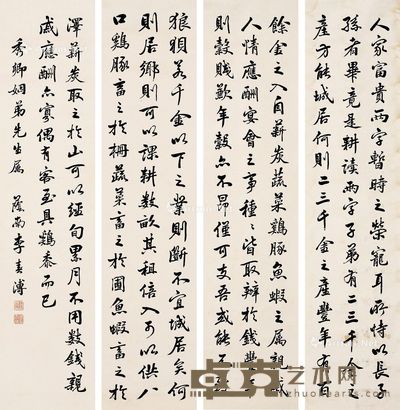 人家富貴兩字暫時之榮寵耳所恃以長子
孫者畢竟是耕讀兩字子弟有二三千金之
產方能城居何則二三千金之產豐年有百
餘金之入自薪炭蔬菜鷄豚魚蝦之屬親戚
人情應酬宴會之事種種皆取辦於錢豐年
則穀賤歉年穀亦不昂僅可支吾或能不至
狼狽若千金以下之業則斷不宜城居矣何
則居鄉則可以課耕數畝其租倍入可以供八
口鷄豚畜之於柵蔬菜畜之於圃魚蝦畜之於
澤薪炭取之於山可以經旬累月不用數錢親
戚應酬亦寡偶有客至具鷄黍而已
秀卿姻弟先生屬 南李春溥
卓克艺术网